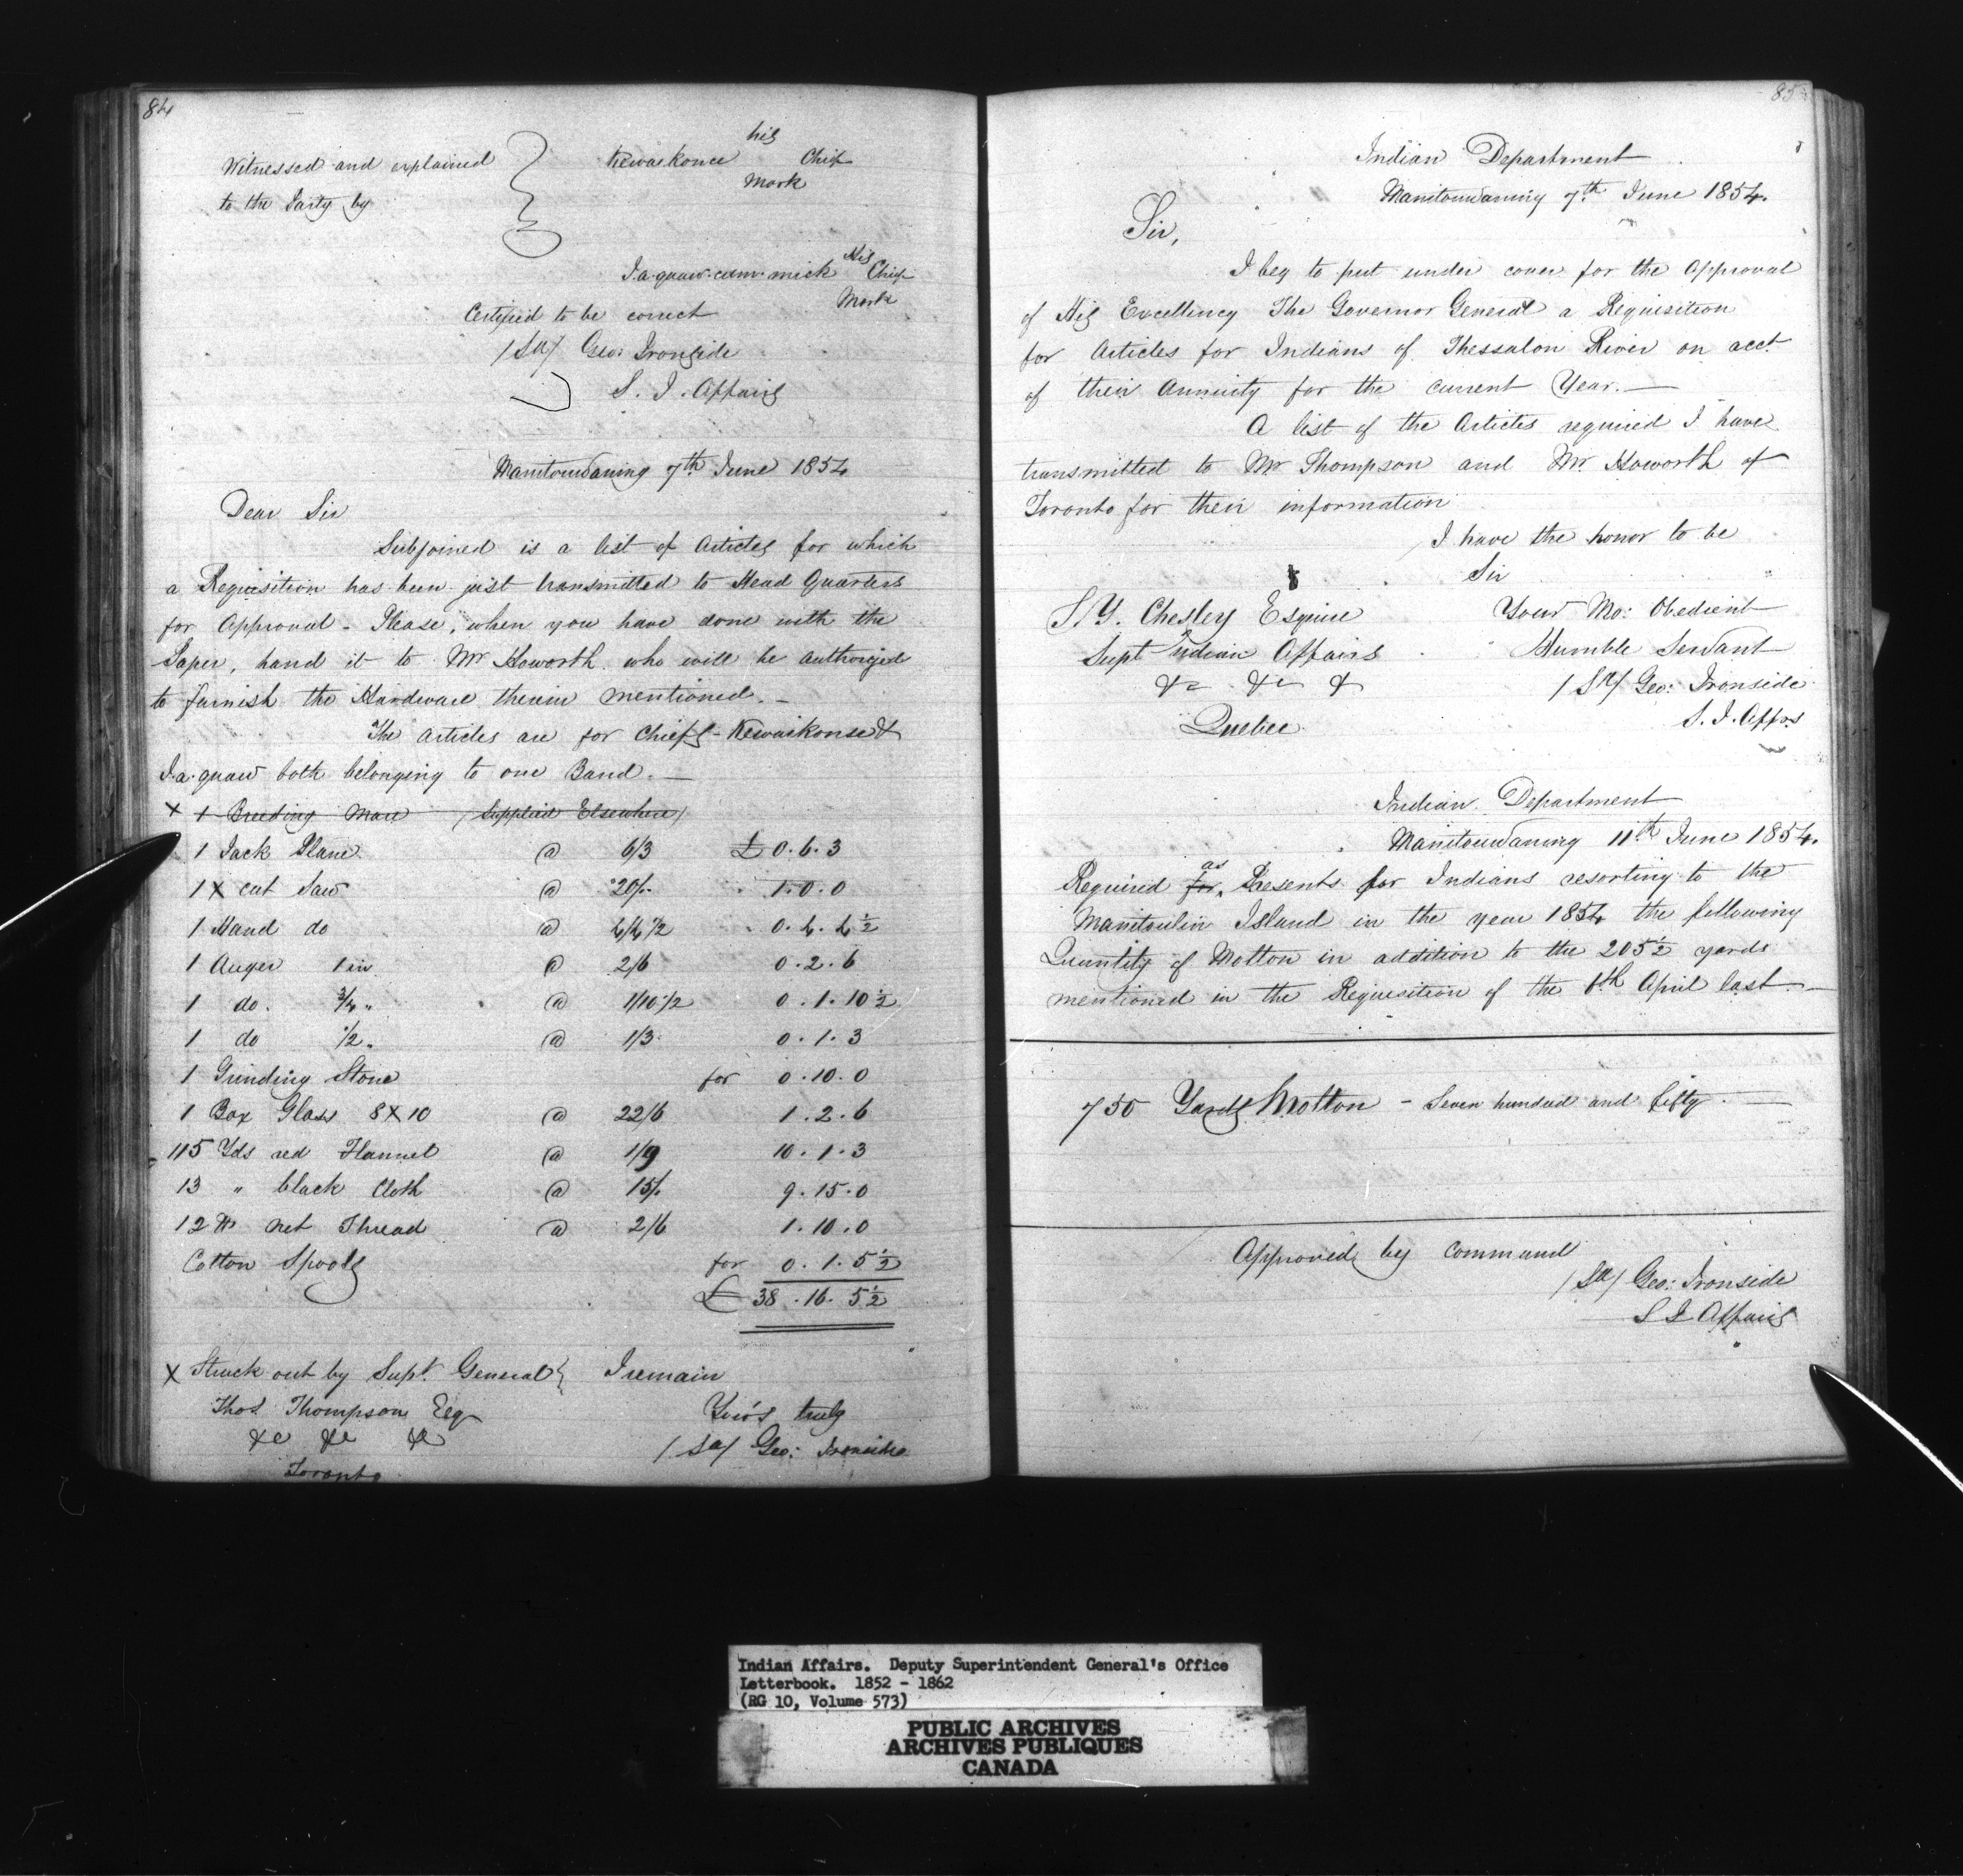 84
Witnessed and explained
to the Party by
his
Kewaskonce Chief
Mark
His
I.a.quaw.cum.mick Chief
Mark
Certified to be correct
/Sd/ Geo: Ironside
S. I. Affairs
Manitowaning 7th June 1854
Dear Sir
Subjoined is a list of Articles for which
a Requisition has been just transmitted to Head Quarters
for Approval - Please, when you have done with the
Paper, hand it to Mr Howorth who will be authorized
to furnish the Hardware therein mentioned. -
The Articles are for Chiefs - Kewaikonse &
I.a.quaw both belonging to one Band. -
x 1 Breeding Mare (Supplied Elsewhere)
1 Jack Plane @ 6/3 £ 0. 6. 3
1 X cut Saw @ 20/- 1. 0. 0
1 Hand do @ 4/4 1/2 0. 4. 4 1/2
1 Auger 1 in @ 2/6 0. 2. 6
1 do. 3/4 " @ 1/10 1/2 0. 1. 10 1/2
1 do 1/2 " @ 1/3 0. 1. 3
1 Grinding Stone for 0. 10. 0
1 Box Glass 8 X 10 @ 22/6 1. 2. 6
115 Yds red Flannel @ 1/9 10. 1. 3
13 " black Cloth @ 15/. 9. 15. 0
12 lbs net Thread @ 2/6 1. 10. 0
Cotton Spools for 0. 1. 5 1/2
£ 38. 16. 5 1/2
x Struck out by Supt. General } I remain
Thos Thompson Esq Your's truly
&c &c &c /Sd/ Geo: Ironside
Toronto
85
Indian Department
Manitowaning 7th June 1854.
Sir,
I beg to put under cover for the Approval
of His Excellency The Governor General a Requisition
for Articles for Indians of Thessalon River on acct
of their Annuity for the current Year. -
A list of the Articles required I have
transmitted to Mr Thompson and Mr Howorth of
Toronto for their information
I have the honor to be
Sir
S. Y. Chesley Esquire Your Mo: Obedient
Supt Indian Affairs Humble Servant
&c &c & /Sd/ Geo: Ironside
Quebec S. I. Affrs
Indian Department
Manitowaning 11th June 1854.
as
Required for Presents for Indians resorting to the
Manitoulin Island in the year 1854 the following
Quantity of Molton in addition to the 205 1/2 yards
mentioned in the Requisition of the 6th April last -
750 Yards Molton - Seven hundred and fifty. -
Approved by Command
/Sd/ Geo: Ironside
S I Affairs
Indian Affairs. Deputy Superintendent General's Office
Letterbook. 1852 - 1862
(RG 10, Volume 573)
PUBLIC ARCHIVES
ARCHIVES PUBLIQUES
CANADA